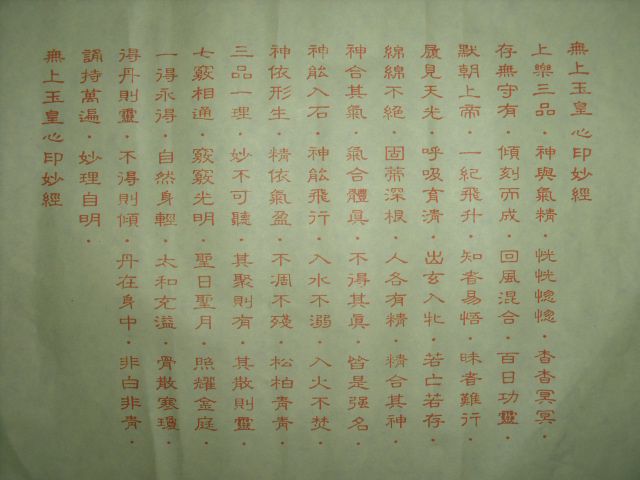 無上玉皇心印妙經
上樂三品·神與氣精·恍恍惚惚·杳杳冥冥·
存無守有·傾刻而成·回風混合·百日功靈·
默朝上帝·一紀飛升·知者易悟·昧者難行·
履見天光·呼吸育清·出玄入牝·若亡若存·
綿綿不絕·固蒂深根·人各有精·精合其神·
神合其氣·氣合體真·不得其真·皆是强名·
神能入石·神能飛行·入水不溺·入火不焚·
神依形生·精依氣盈·不凋不殘·松柏青青·
三品一理·妙不可聽·其聚則有·其散則靈·
七竅相通·竅竅光明·聖日聖月·照耀金庭·
一得永得·自然身輕·太和充溢·骨散寒瓊·
得丹則靈·不得則傾·丹在身中·非白非青·
誦持萬遍·妙理自明·
無上玉皇心印妙經